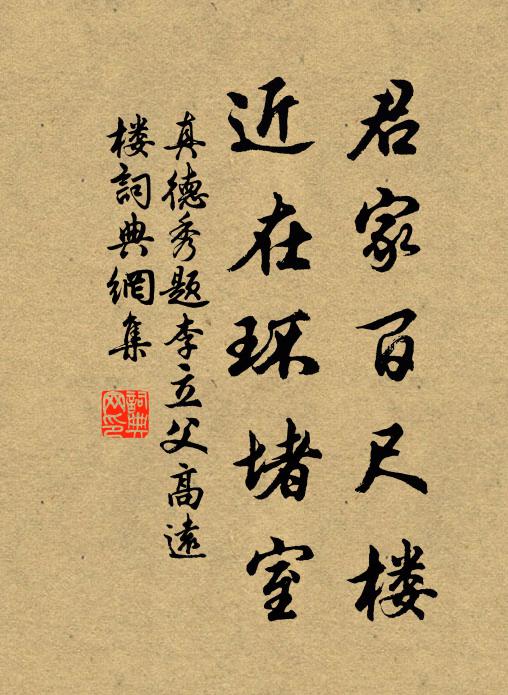 君家百尺楼
近在环堵室
真德秀题李立父高遠
楼詞典網集
詞典
网印